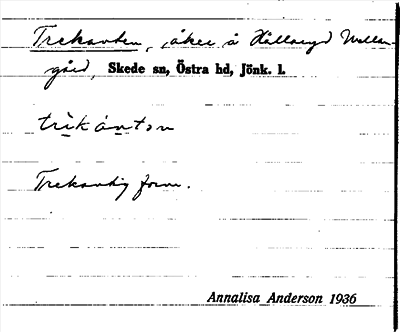 Trekanten, åker å Hållaryd Mellan-
gård, Skede sn, Östra hd, Jönk. l.
trìkántɘn
Trekantig form.
Annalisa Anderson 1936